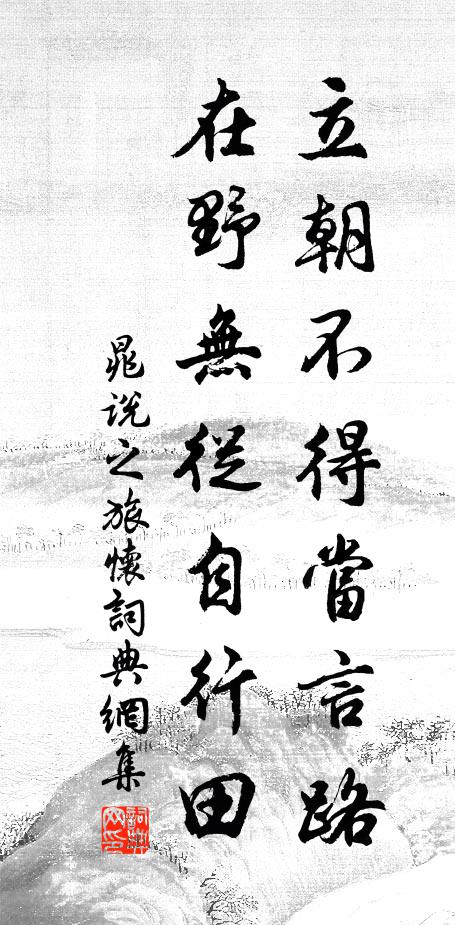 立朝不得當言路
在野無從自行田
晁说之旅懷詞典網集